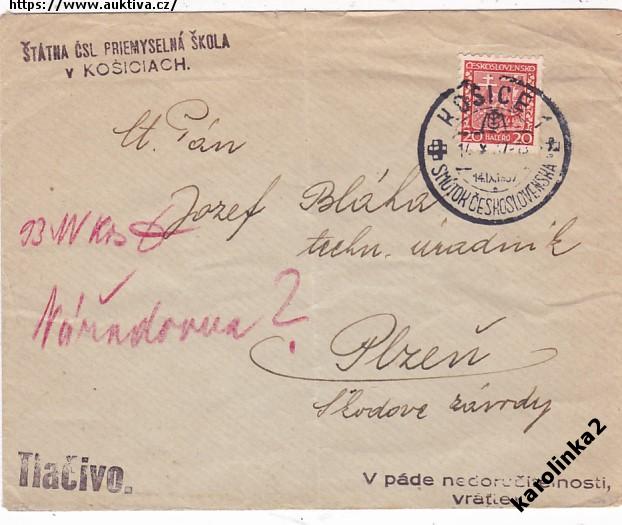 https://www.auktiva.cz/
ŠTÁTNA ČSL. PRIEMYSELNÁ ŠKOLA
V KOŠICIACH.
ČESKOSLOVENSKO
20 HALÉŘŮ 20
KOŠICE 1
14.IX.1937
SMÚTOK ČESKOSLOVENSKA
Ct. Pán
Jozef Bláha
techn. úradník
Nářadovna?
Plzeň
Škodove závody
Tlačivo.
V páde nedoručiteľnosti,
vráťte
karolinka2